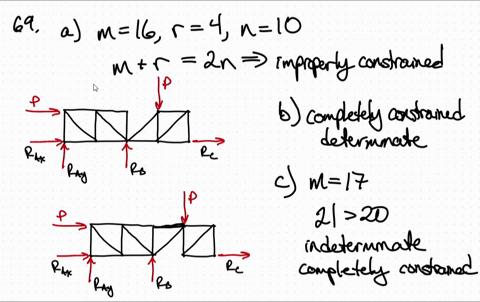 69. a) m=16, r=4, n=10
m+r = 2n ⇒ improperly constrained
P
P
R_Ax
R_Ay
R_B
R_C
b) completely constrained
determinate
c) m=17
21>20
indeterminate
completely constrained
P
P
R_Ax
R_Ay
R_B
R_C